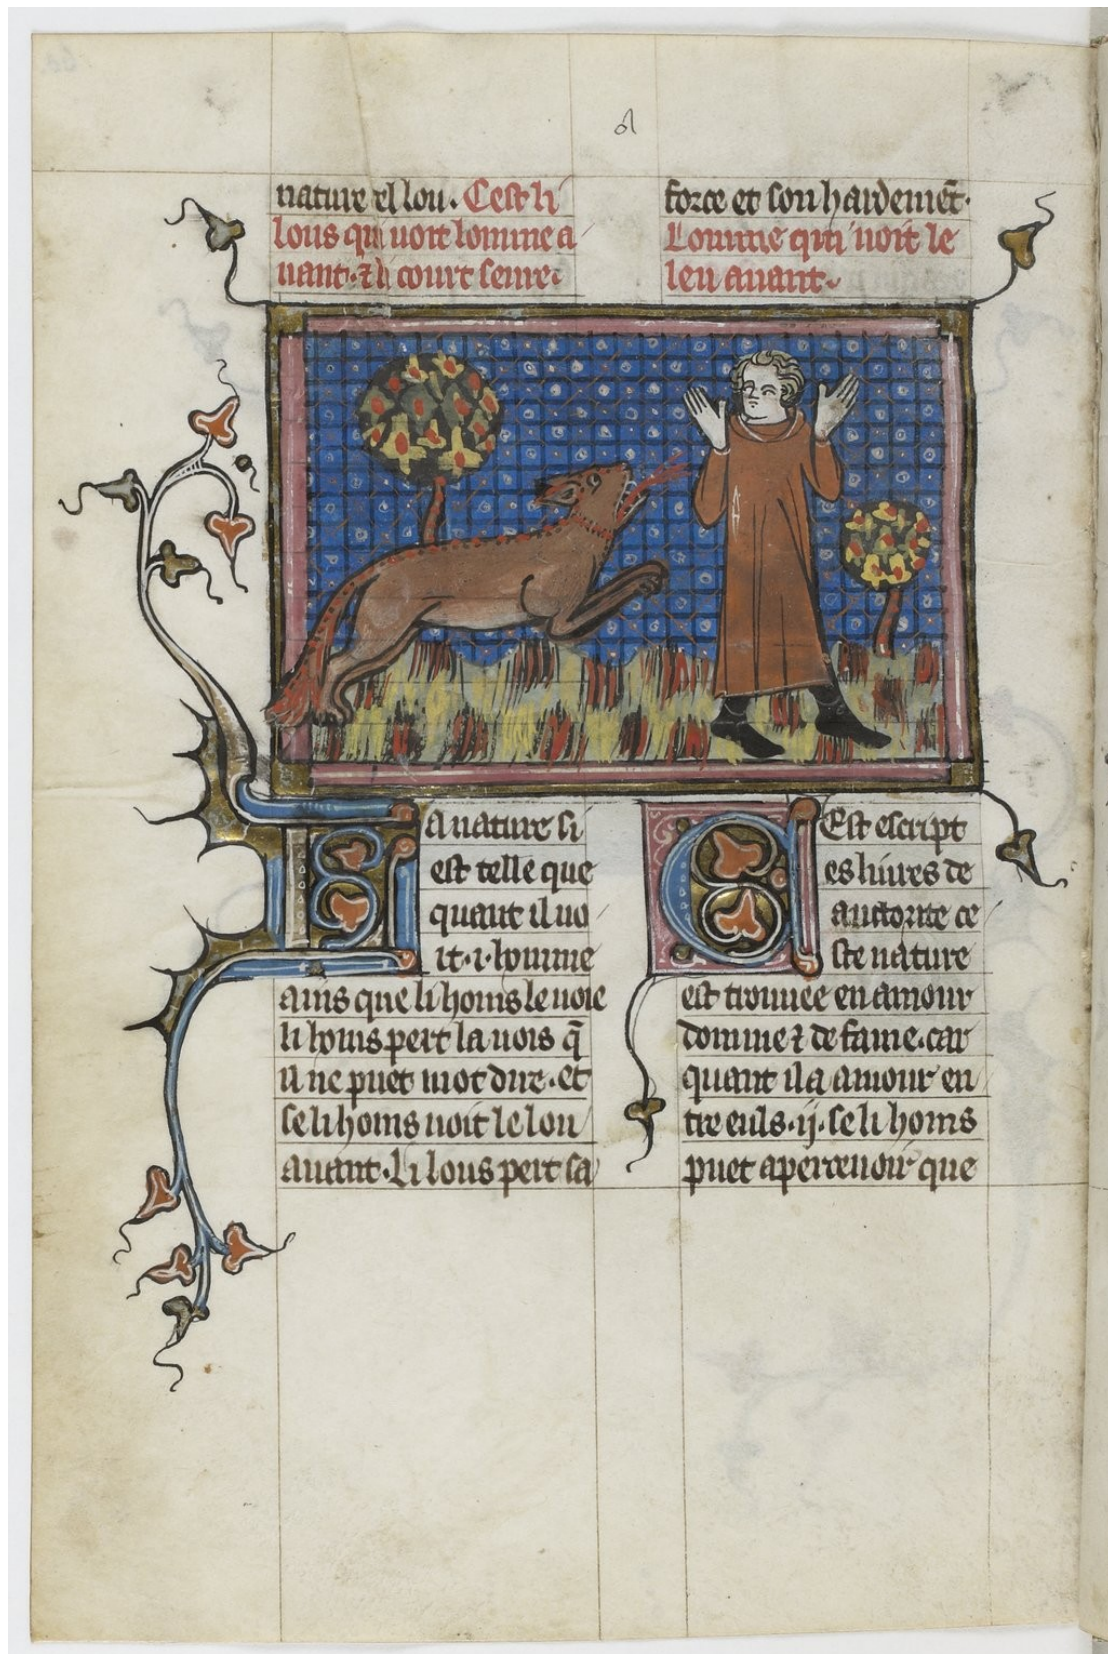 nature el lou. Cest li
lous qui uoit lomme a
uant. ⁊ li court seure
La nature si
est telle que
quant il uo
it .i. homme
ains que li homs le uoie
li homs pert la uois q̄
il ne puet mot dire. et
se li homs uoit le lou
auant. Li lous pert sa
force et son hardemēt.
Lomme qui uoit le
leu auant.
CEst escript
es liures de
auctorite ce
ste nature
est trouuee en amour
domme ⁊ de fame. car
quant il a amour en
tre euls .ij. se li homs
puet apercevoir que